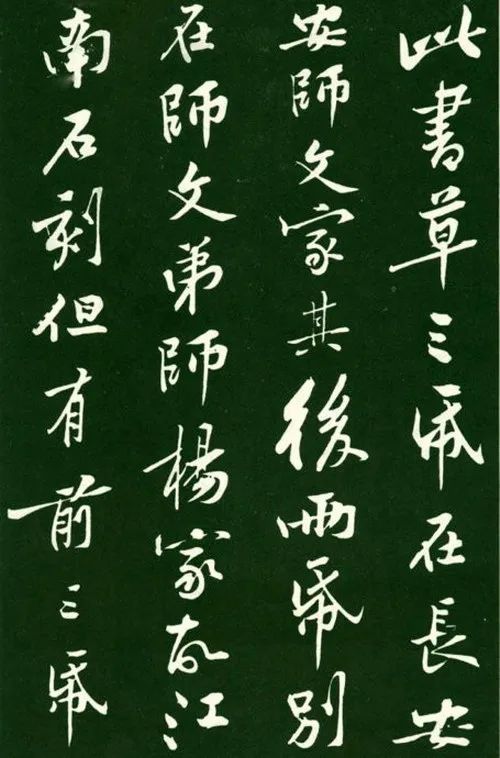 此書草三帋在長安
安師文家其後兩帋別
在師文弟師楊家故江
南石刻但有前三帋